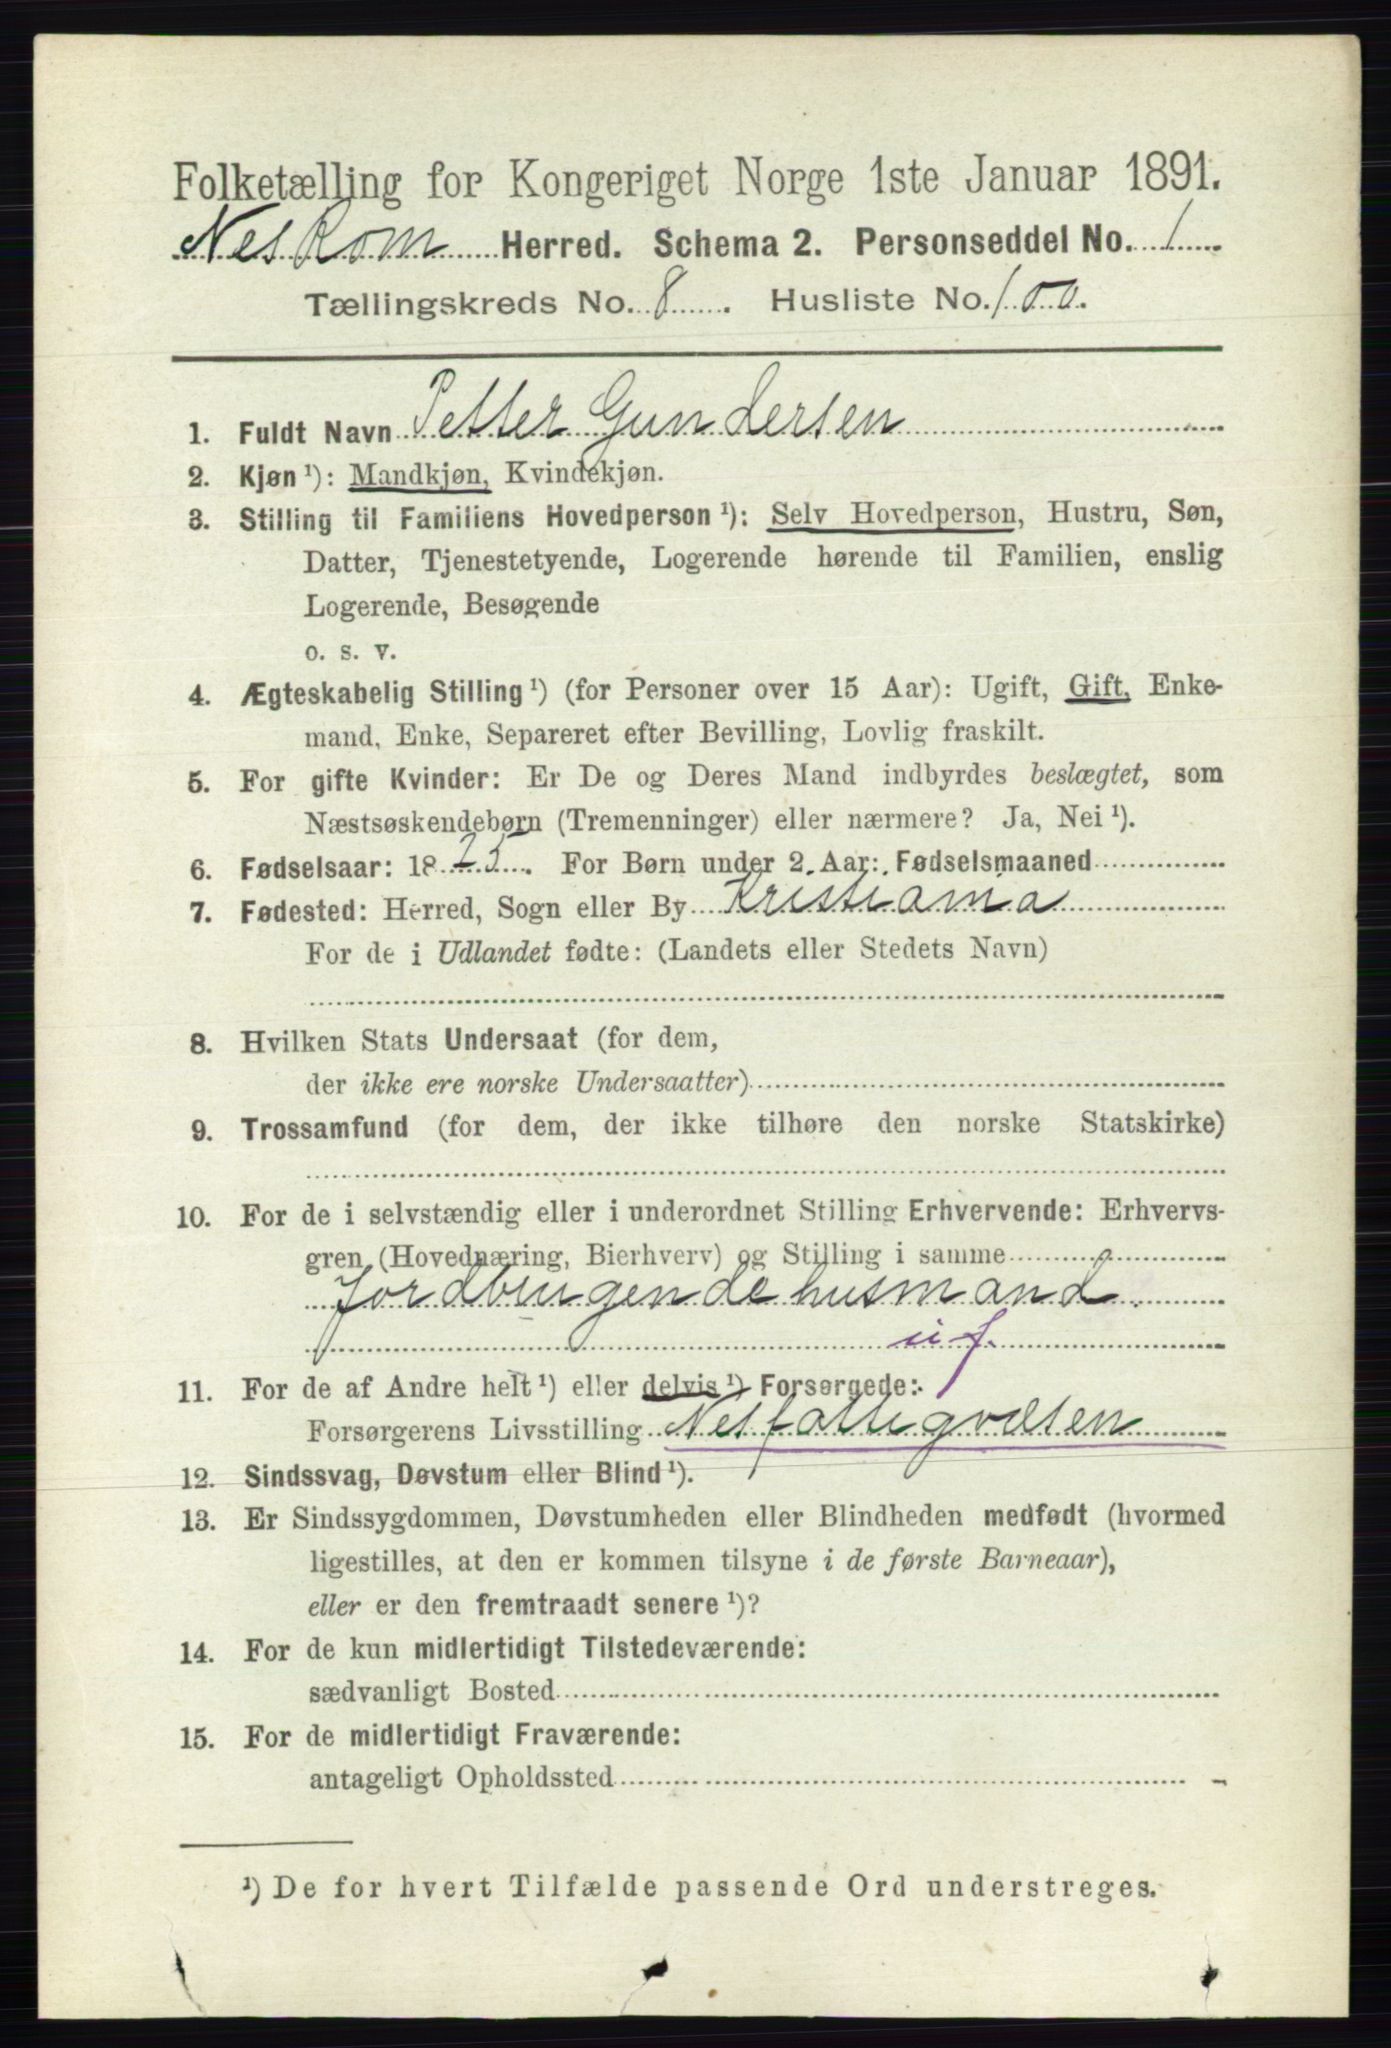 Folketælling for Kongeriget Norge 1ste Januar 1891.
Nes Rom Herred. Schema 2. Personseddel No. 1
Tællingskreds No. 8. Husliste No. 100.
1. Fuldt Navn Petter Gundersen
2. Kjøn ¹): Mandkjøn, Kvindekjøn.
3. Stilling til Familiens Hovedperson ¹): Selv Hovedperson, Hustru, Søn,
Datter, Tjenestetyende, Logerende hørende til Familien, enslig
Logerende, Besøgende
o. s. v.
4. Ægteskabelig Stilling ¹) (for Personer over 15 Aar): Ugift, Gift, Enke-
mand, Enke, Separeret efter Bevilling, Lovlig fraskilt.
5. For gifte Kvinder: Er De og Deres Mand indbyrdes beslægtet, som
Næstsøskendebørn (Tremenninger) eller nærmere? Ja, Nei ¹).
6. Fødselsaar: 1825. For Børn under 2 Aar: Fødselsmaaned
7. Fødested: Herred, Sogn eller By Kristiania
For de i Udlandet fødte: (Landets eller Stedets Navn)
8. Hvilken Stats Undersaat (for dem,
der ikke ere norske Undersaatter)
9. Trossamfund (for dem, der ikke tilhøre den norske Statskirke)
10. For de i selvstændig eller i underordnet Stilling Erhvervende: Erhvervs-
gren (Hovednæring, Bierhverv) og Stilling i samme
Jordbrugende husmand
uf.
11. For de af Andre helt ¹) eller delvis ¹) Forsørgede:
Forsørgerens Livsstilling Nes fattigvæsen
12. Sindssvag, Døvstum eller Blind ¹).
13. Er Sindssygdommen, Døvstumheden eller Blindheden medfødt (hvormed
ligestilles, at den er kommen tilsyne i de første Barneaar),
eller er den fremtraadt senere ¹)?
14. For de kun midlertidigt Tilstedeværende:
sædvanligt Bosted
15. For de midlertidigt Fraværende:
antageligt Opholdssted
¹) De for hvert Tilfælde passende Ord understreges.